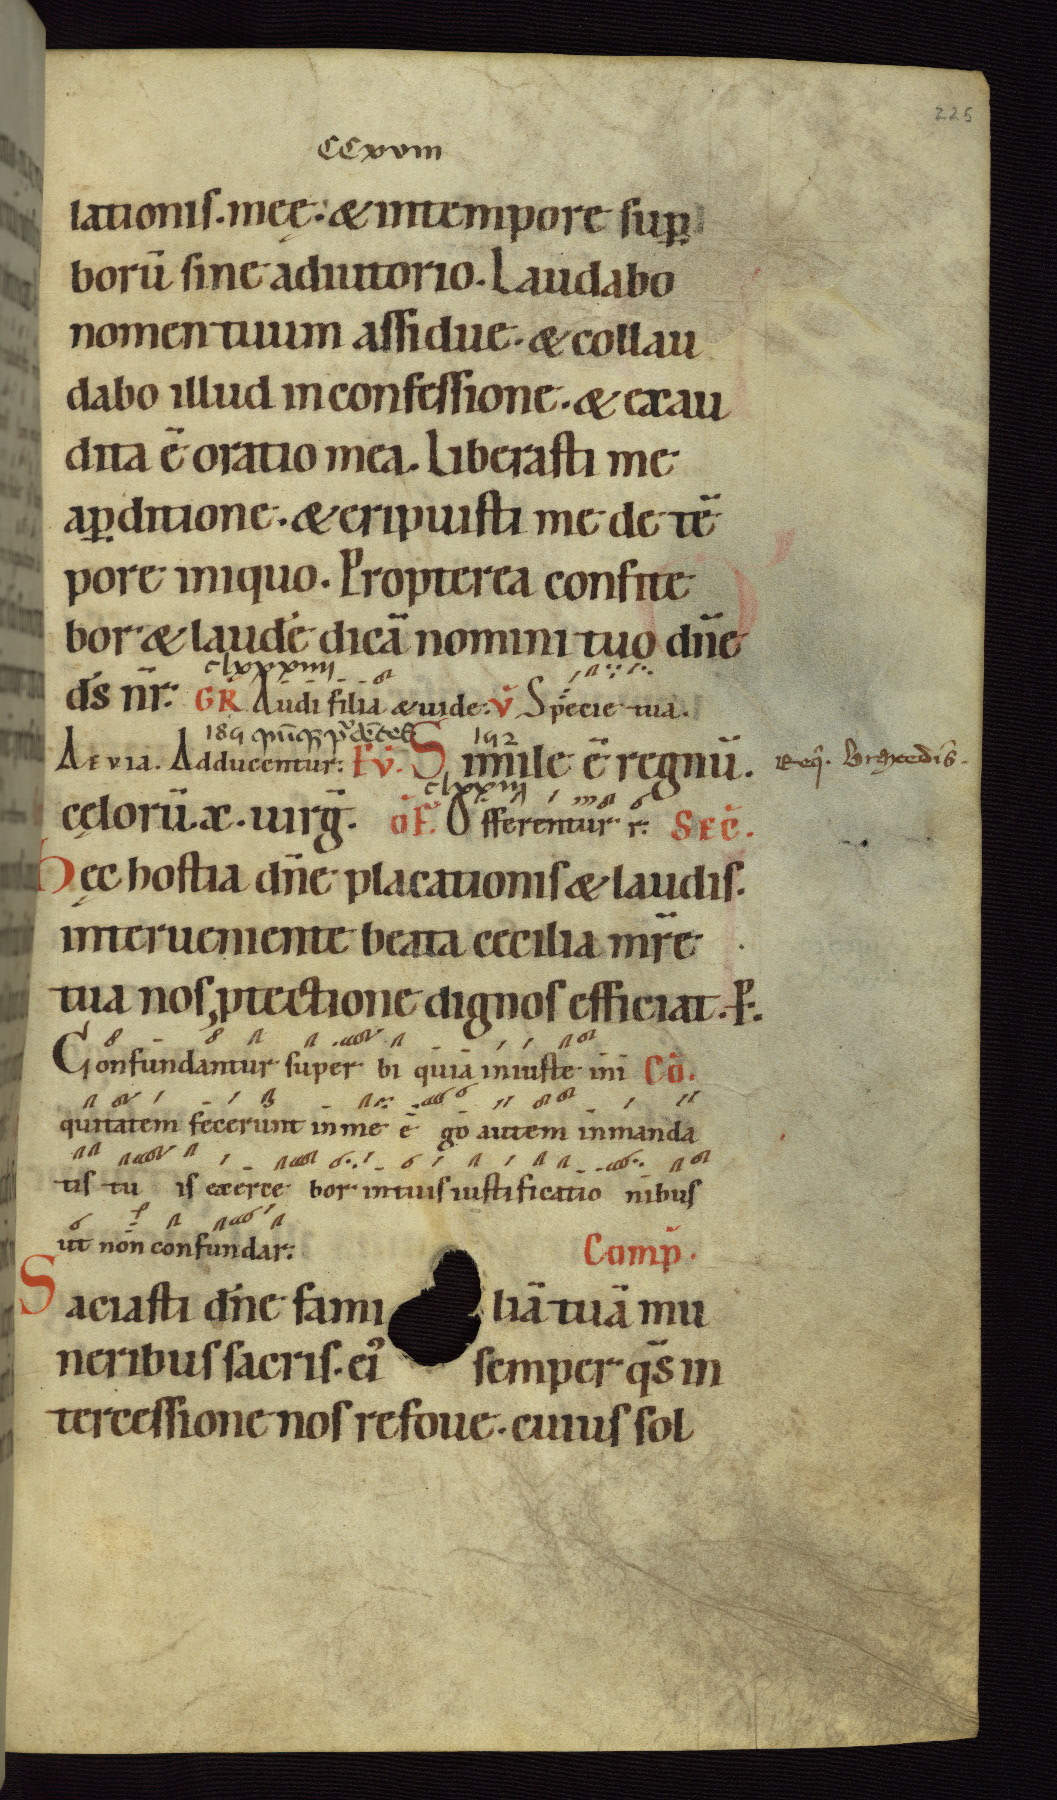 225
CCxviii
lationis. meę: & in tempore suꝑ
borū sine adiutorio. Laudabo
nomen tuum assidue. & collau
dabo illud in confessione. & exau
dita ē oratio mea. Liberasti me
aꝑditione. & eripuisti me de tē
pore iniquo. Propterea confite
bor & laudē dicā nomini tuo dn̄e
clxxxiiii
ds̄ nr̄: GR Audi filia & uide: V̄ Specie tua.
189 192
Aevia. Adducentur: Ev̄. Simile ē regnū.
clxxiii
cęlorū. x. uirḡ. oF̄. Offerentur r: SEC̄.
Hęc hostia dn̄e placationis & laudis.
interueniente beata cecilia mr̄e
tua nos, ꝓtectione dignos efficiat. P.
Confundantur super bi quia iniuste ini Cō.
quitatem fecerunt in me ē go autem in manda
tis tu is exerce bor in tuis iustificatio nibus
ut non confundar: Comp̄.
Saciasti dn̄e fami liā tuā mu
neribus sacris. ei᾽ semper qs̄ in
tercessione nos refoue. cuius sol